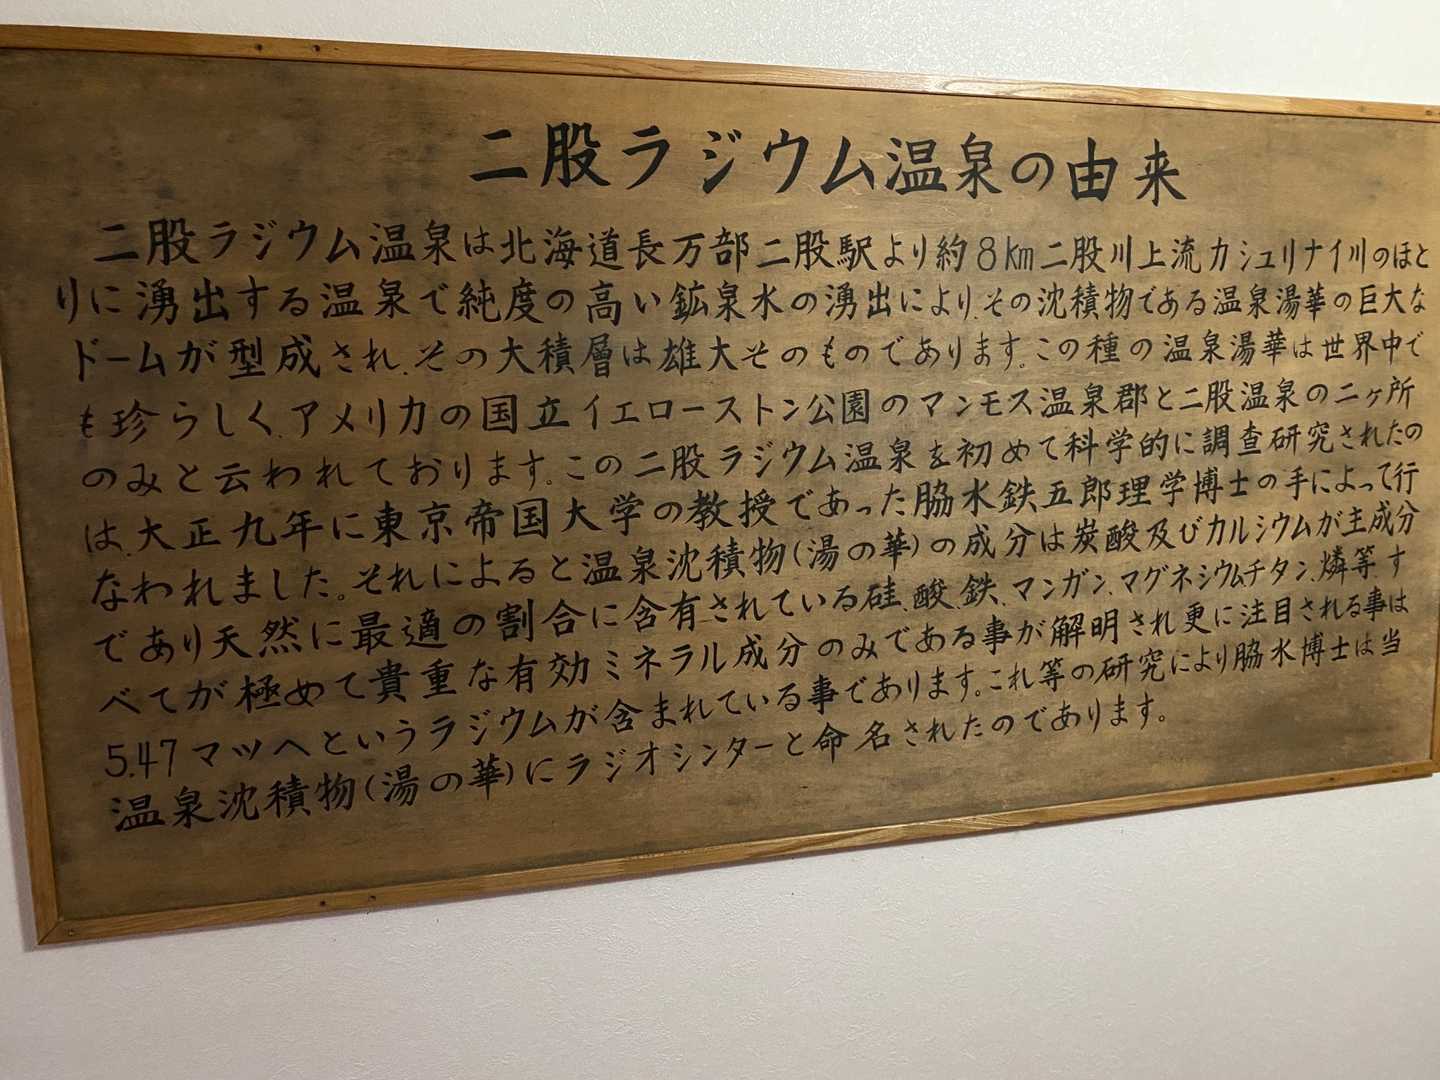 二股ラジウム温泉の由来
二股ラジウム温泉は北海道長万部二股駅より約8km二股川上流カシュリナイ川のほと
りに湧出する温泉で純度の高い鉱泉水の湧出により、その沈積物である温泉湯華の巨大な
ドームが型成され、その大積層は雄大そのものであります。この種の温泉湯華は世界中で
も珍らしく、アメリカの国立イエローストン公園のマンモス温泉郡と二股温泉の二ヶ所
のみと云われております。この二股ラジウム温泉を初めて科学的に調査研究されたの
は、大正九年に東京帝国大学の教授であった脇水鉄五郎理学博士の手によって行
なわれました。それによると温泉沈積物(湯の華)の成分は炭酸及びカルシウムが主成分
であり天然に最適の割合に含有されている硅、酸、鉄、マンガン、マグネシウムチタン、燐等、す
べてが極めて貴重な有効ミネラル成分のみである事が解明され更に注目される事は
5.47マツヘというラジウムが含まれている事であります。これ等の研究により脇水博士は当
温泉沈積物(湯の華)にラジオシンターと命名されたのであります。